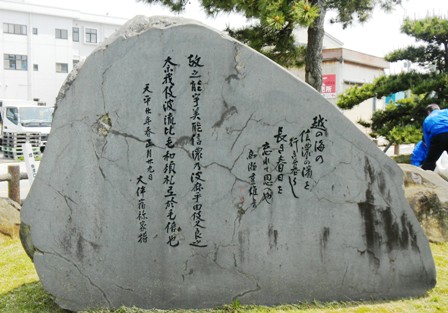 越の海の
信濃の浜を
行き暮らし
長き春日も
忘れて思へや
故之能宇美能信濃乃波麻乎由伎久良之
奈我伎波流比毛和須礼弖於毛倍也
天平廿年春正月廿九日
大伴宿祢家持